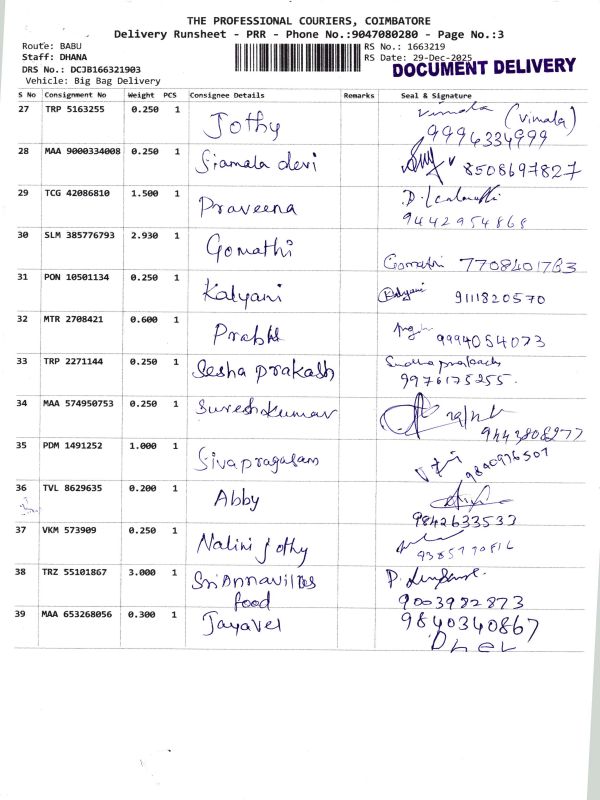 THE PROFESSIONAL COURIERS, COIMBATORE
Delivery Runsheet - PRR - Phone No.:9047080280 - Page No.:3
Route: BABU
Staff: DHANA
DRS No.: DCJB166321903
Vehicle: Big Bag Delivery
RS No.: 1663219
RS Date: 29-Dec-2025
DOCUMENT DELIVERY
S No Consignment No Weight PCS Consignee Details Remarks Seal & Signature
27 TRP 5163255 0.250 1 Jothy Vimala (Vimala)
9994334999
28 MAA 9000334008 0.250 1 Siamala devi 8508697827
29 TCG 42086810 1.500 1 Praveena
9442954868
30 SLM 385776793 2.930 1 Gomathi Gomathi 7708401783
31 PON 10501134 0.250 1 Kalyani Kalyani 9111820570
32 MTR 2708421 0.600 1 Prabhu 9994054073
33 TRP 2271144 0.250 1 Sesha prakash
9976175255.
34 MAA 574950753 0.250 1 Sureshkumar
9443808277
35 PDM 1491252 1.000 1 Sivapragasam 9890976507
36 TVL 8629635 0.200 1 Abby
9842633533
37 VKM 573909 0.250 1 Nalini Jothy
38 TRZ 55101867 3.000 1 Sri Annavilas
food 9003982873
39 MAA 653268056 0.300 1 Jayavel 9840340867